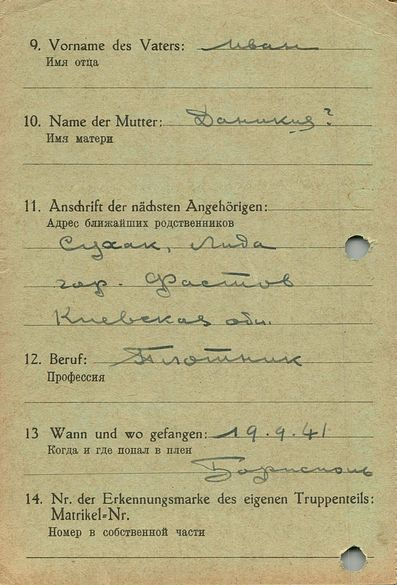 9. Vorname des Vaters: Иван
Имя отца
10. Name der Mutter: Даникия?
Имя матери
11. Anschrift der nächsten Angehörigen:
Адрес ближайших родственников
Сухак, Лида
гор. Фастов
Киевская обл.
12. Beruf: Плотник
Профессия
13 Wann und wo gefangen: 19.9.41
Когда и где попал в плен
Борисполь
14. Nr. der Erkennungsmarke des eigenen Truppenteils:
Matrikel-Nr.
Номер в собственной части